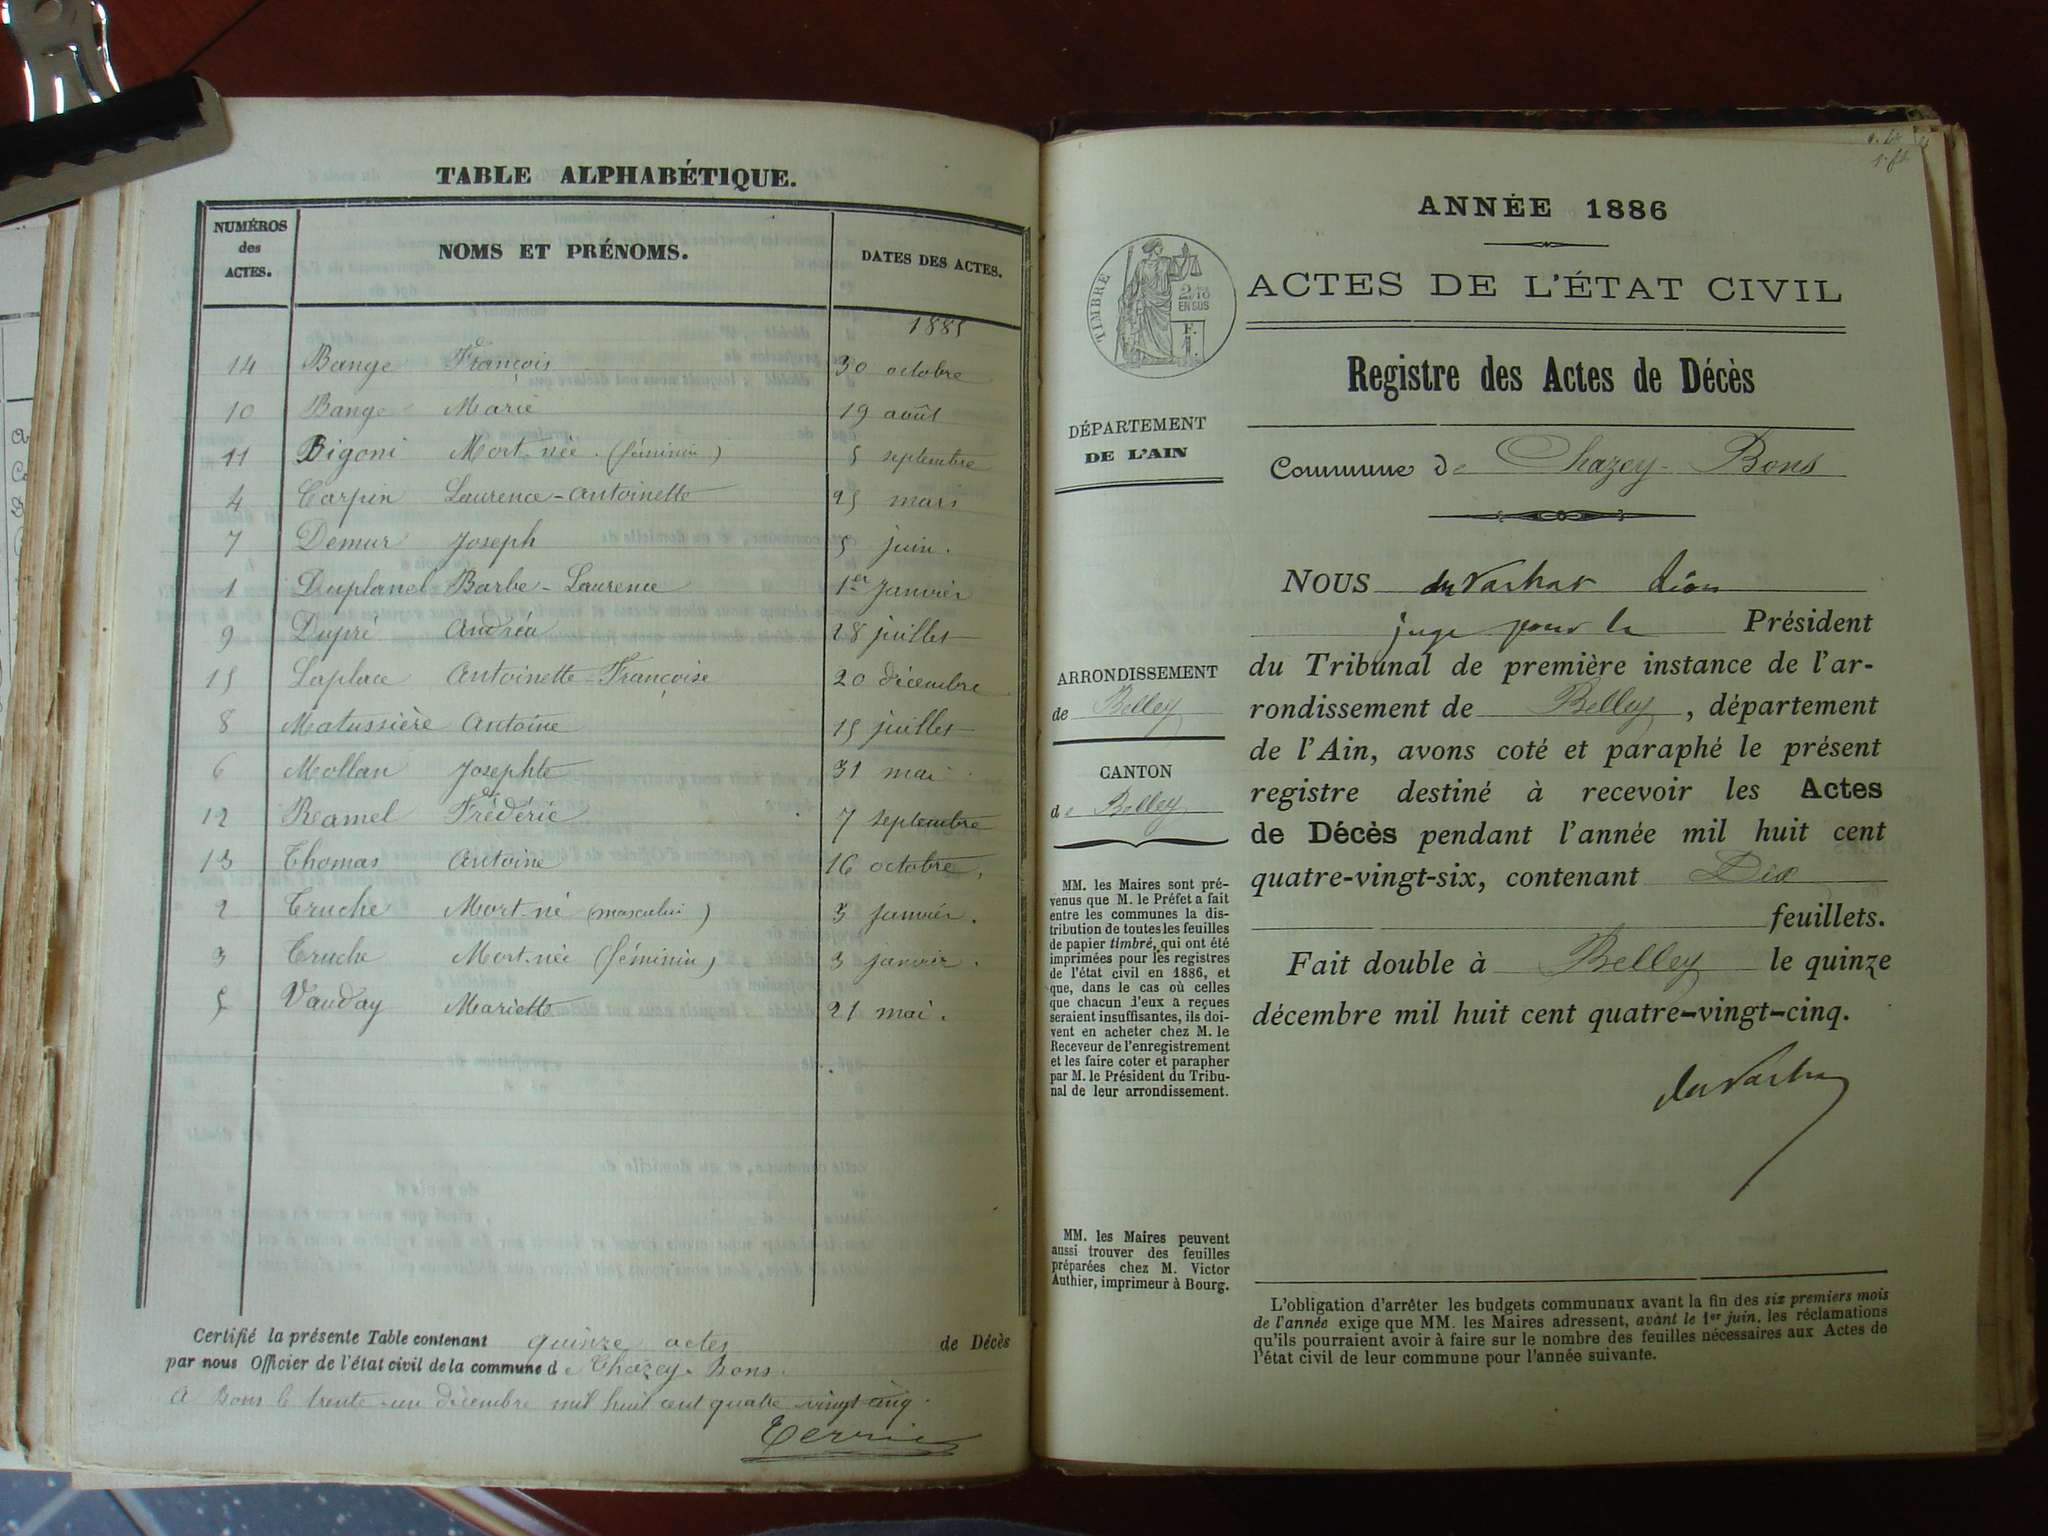 TABLE ALPHABÉTIQUE.
NUMÉROS des ACTES. NOMS ET PRÉNOMS. DATES DES ACTES.
1885
14 Bange François 30 octobre
10 Bange Marie 19 août
11 Bigoni Mort-née (féminin) 5 septembre
4 Carpin Laurence-Antoinette 25 mars
7 Demur Joseph 5 juin.
1 Duplanel Barbe-Laurence 1er janvier
9 Dupré Andréa 28 juillet
15 Laplace Antoinette-Françoise 20 décembre
8 Matussière Antoine 15 juillet
6 Mollan Josephte 31 mai
12 Ramel Frédéric 7 septembre
13 Thomas Antoine 16 octobre,
2 Truche Mort-né (masculin) 3 janvier.
3 Truche Mort-née (féminin) 3 janvier.
5 Vauday Mariette 21 mai.
Certifié la présente Table contenant quinze actes de Décès
par nous Officier de l'état civil de la commune de Chazey-Bons.
A Bons le trente-un décembre mil huit cent quatre-vingt-cinq.
ANNÉE 1886
TIMBRE
2/10
EN SUS
F.
1.
ACTES DE L'ÉTAT CIVIL
Registre des Actes de Décès
DÉPARTEMENT
DE L'AIN
Commune de Chazey-Bons
NOUS
juge pour le Président
du Tribunal de première instance de l'ar-
rondissement de Belley, département
de l'Ain, avons coté et paraphé le présent
registre destiné à recevoir les Actes
de Décès pendant l'année mil huit cent
quatre-vingt-six, contenant Dix
feuillets.
Fait double à Belley le quinze
décembre mil huit cent quatre-vingt-cinq.
ARRONDISSEMENT
de Belley
CANTON
de Belley
MM. les Maires sont pré-
venus que M. le Préfet a fait
entre les communes la dis-
tribution de toutes les feuilles
de papier timbré, qui ont été
imprimées pour les registres
de l'état civil en 1886, et
que, dans le cas où celles
que chacun d'eux a reçues
seraient insuffisantes, ils doi-
vent en acheter chez M. le
Receveur de l'enregistrement
et les faire coter et parapher
par M. le Président du Tribu-
nal de leur arrondissement.
MM. les Maires peuvent
aussi trouver des feuilles
préparées chez M. Victor
Authier, imprimeur à Bourg.
L'obligation d'arrêter les budgets communaux avant la fin des six premiers mois
de l'année exige que MM. les Maires adressent, avant le 1er juin, les réclamations
qu'ils pourraient avoir à faire sur le nombre des feuilles nécessaires aux Actes de
l'état civil de leur commune pour l'année suivante.